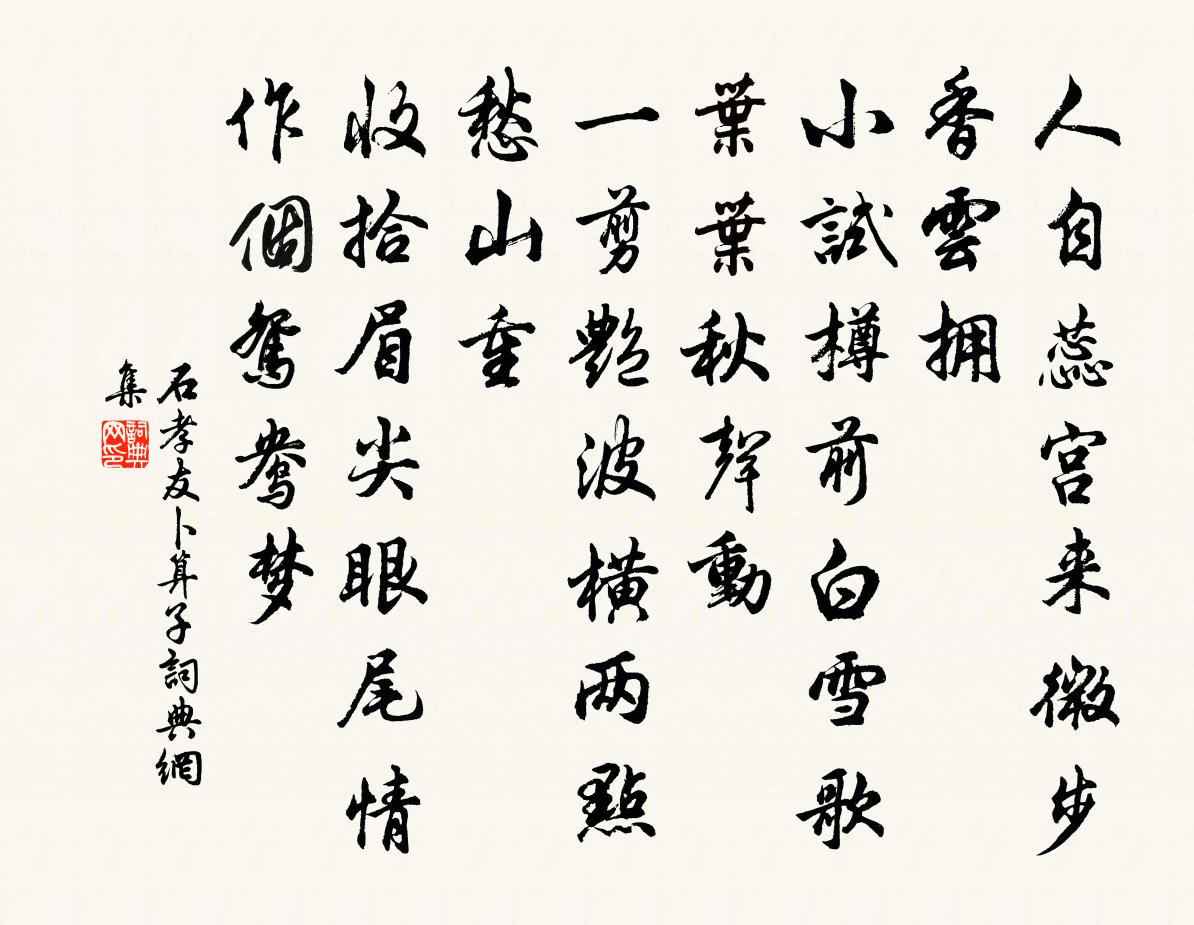 人自蕊宫来微步
香雲拥
小試樽前白雪歌
葉葉秋聲動
一剪艷波橫两點
愁山重
收拾眉尖眼尾情
作個鴛鴦梦
石孝友卜算子詞典網
集
詞典
网印